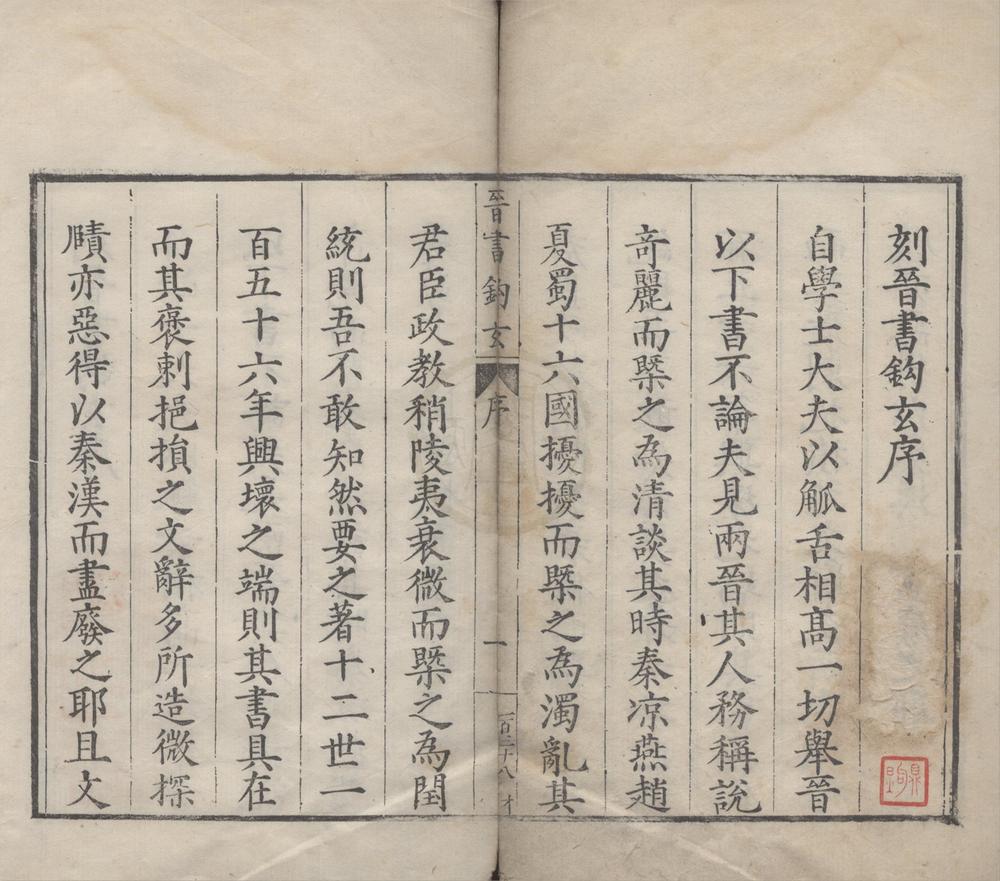 刻晉書鈎玄序
自學士大夫以觚舌相髙一切舉晉
以下書不論夫見兩晉其人務稱說
奇麗而槩之為清談其時秦凉燕趙
夏蜀十六國擾擾而槩之為濁亂其
晉書鈎玄
序
一
一百三十八
才
君臣政教稍陵夷衰微而槩之為閏
統則吾不敢知然要之著十二世一
百五十六年興壞之端則其書具在
而其褒刺挹損之文辭多所造微探
賾亦惡得以秦漢而盡廢之耶且文